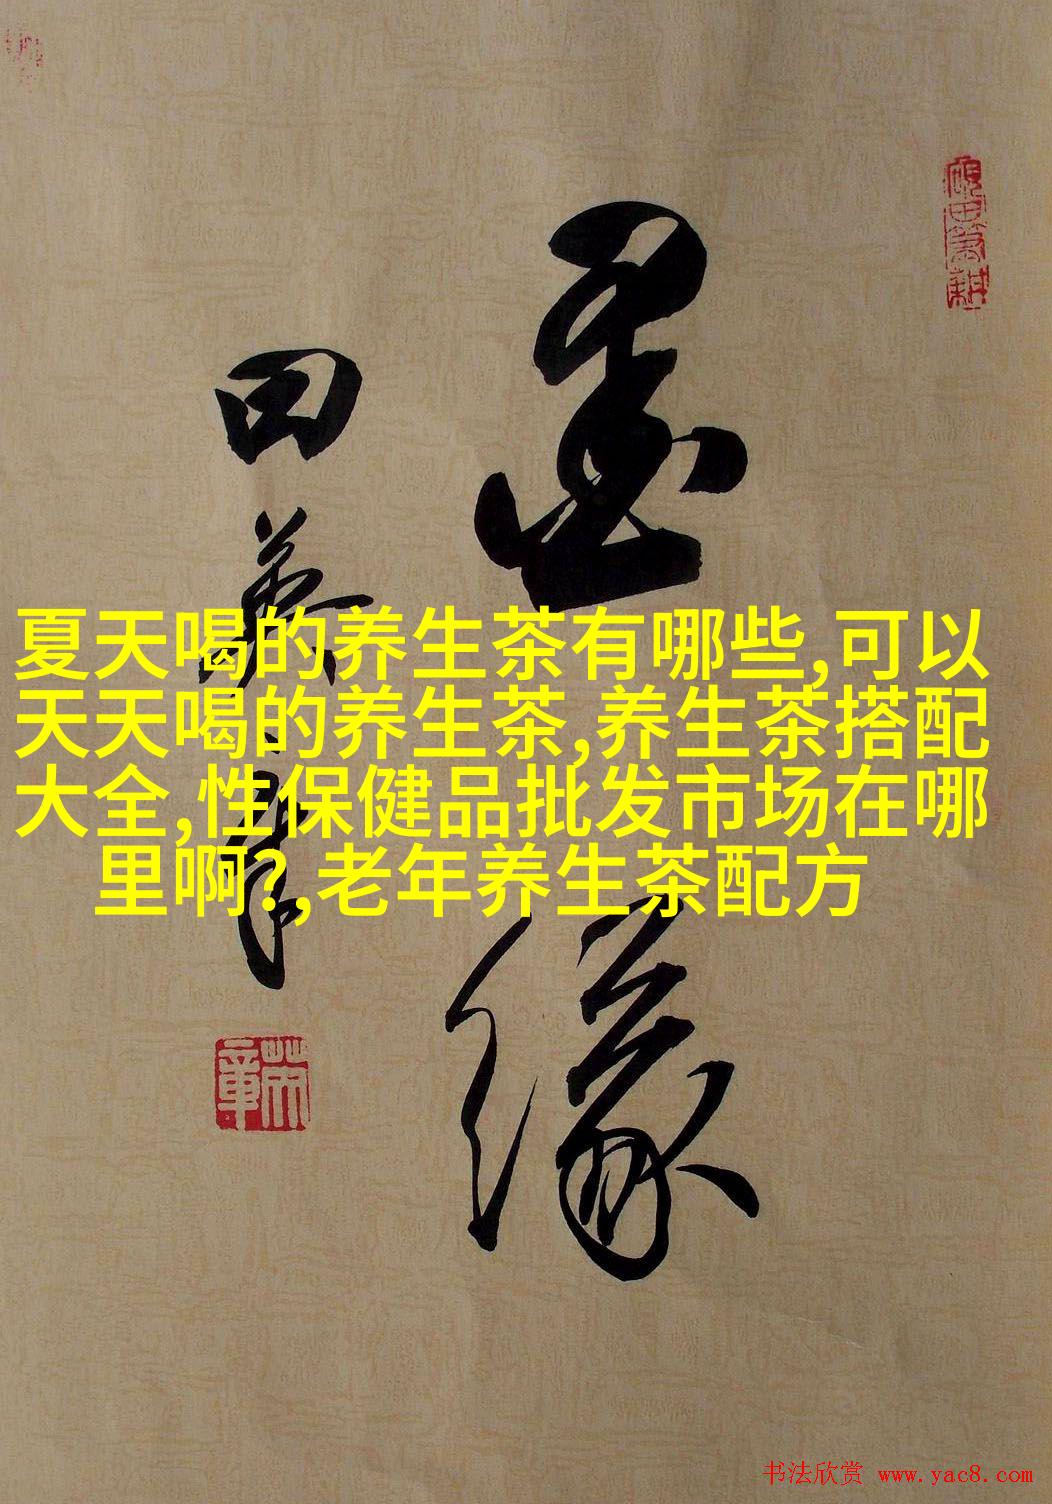 夏天喝的养生茶有哪些,可以
天天喝的养生茶,养生茶搭配
大全,性保健品批发市场在哪
里啊?,老年养生茶配方
墨缘
田英章
书法欣赏 www.yac8.com